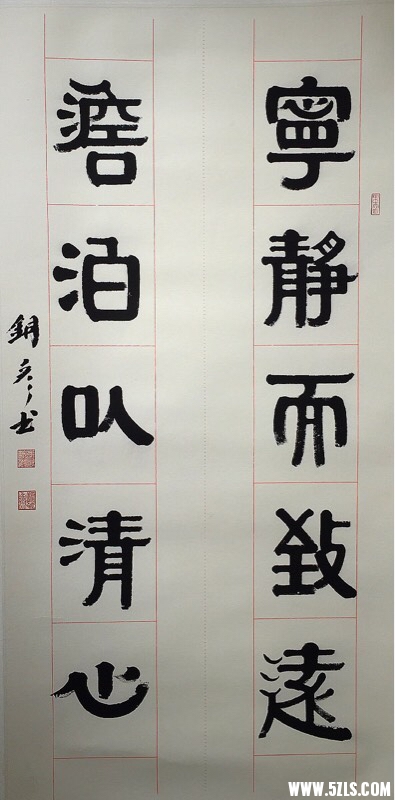 寧靜而致遠
澹泊以清心
书
WWW.5ZLS.COM